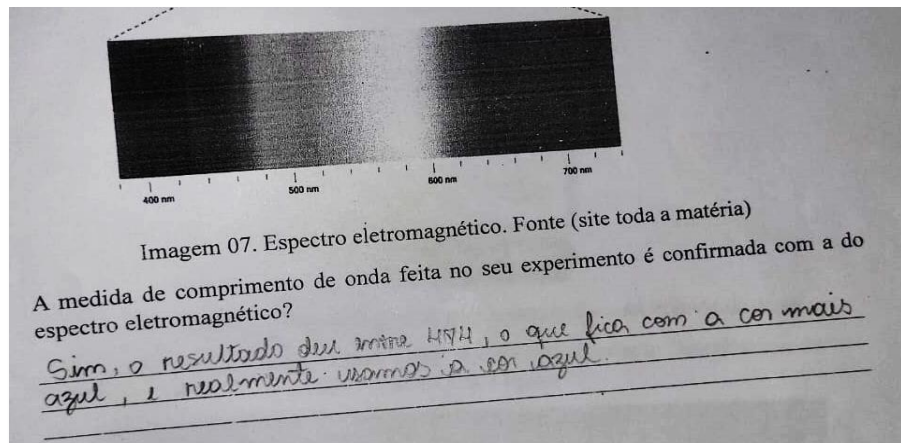 400 nm 500 nm 600 nm 700 nm
Imagem 07. Espectro eletromagnético. Fonte (site toda a matéria)
A medida de comprimento de onda feita no seu experimento é confirmada com a do
espectro eletromagnético?
Sim, o resultado deu entre 474, o que fica com a cor mais
azul, e realmente usamos a cor azul.